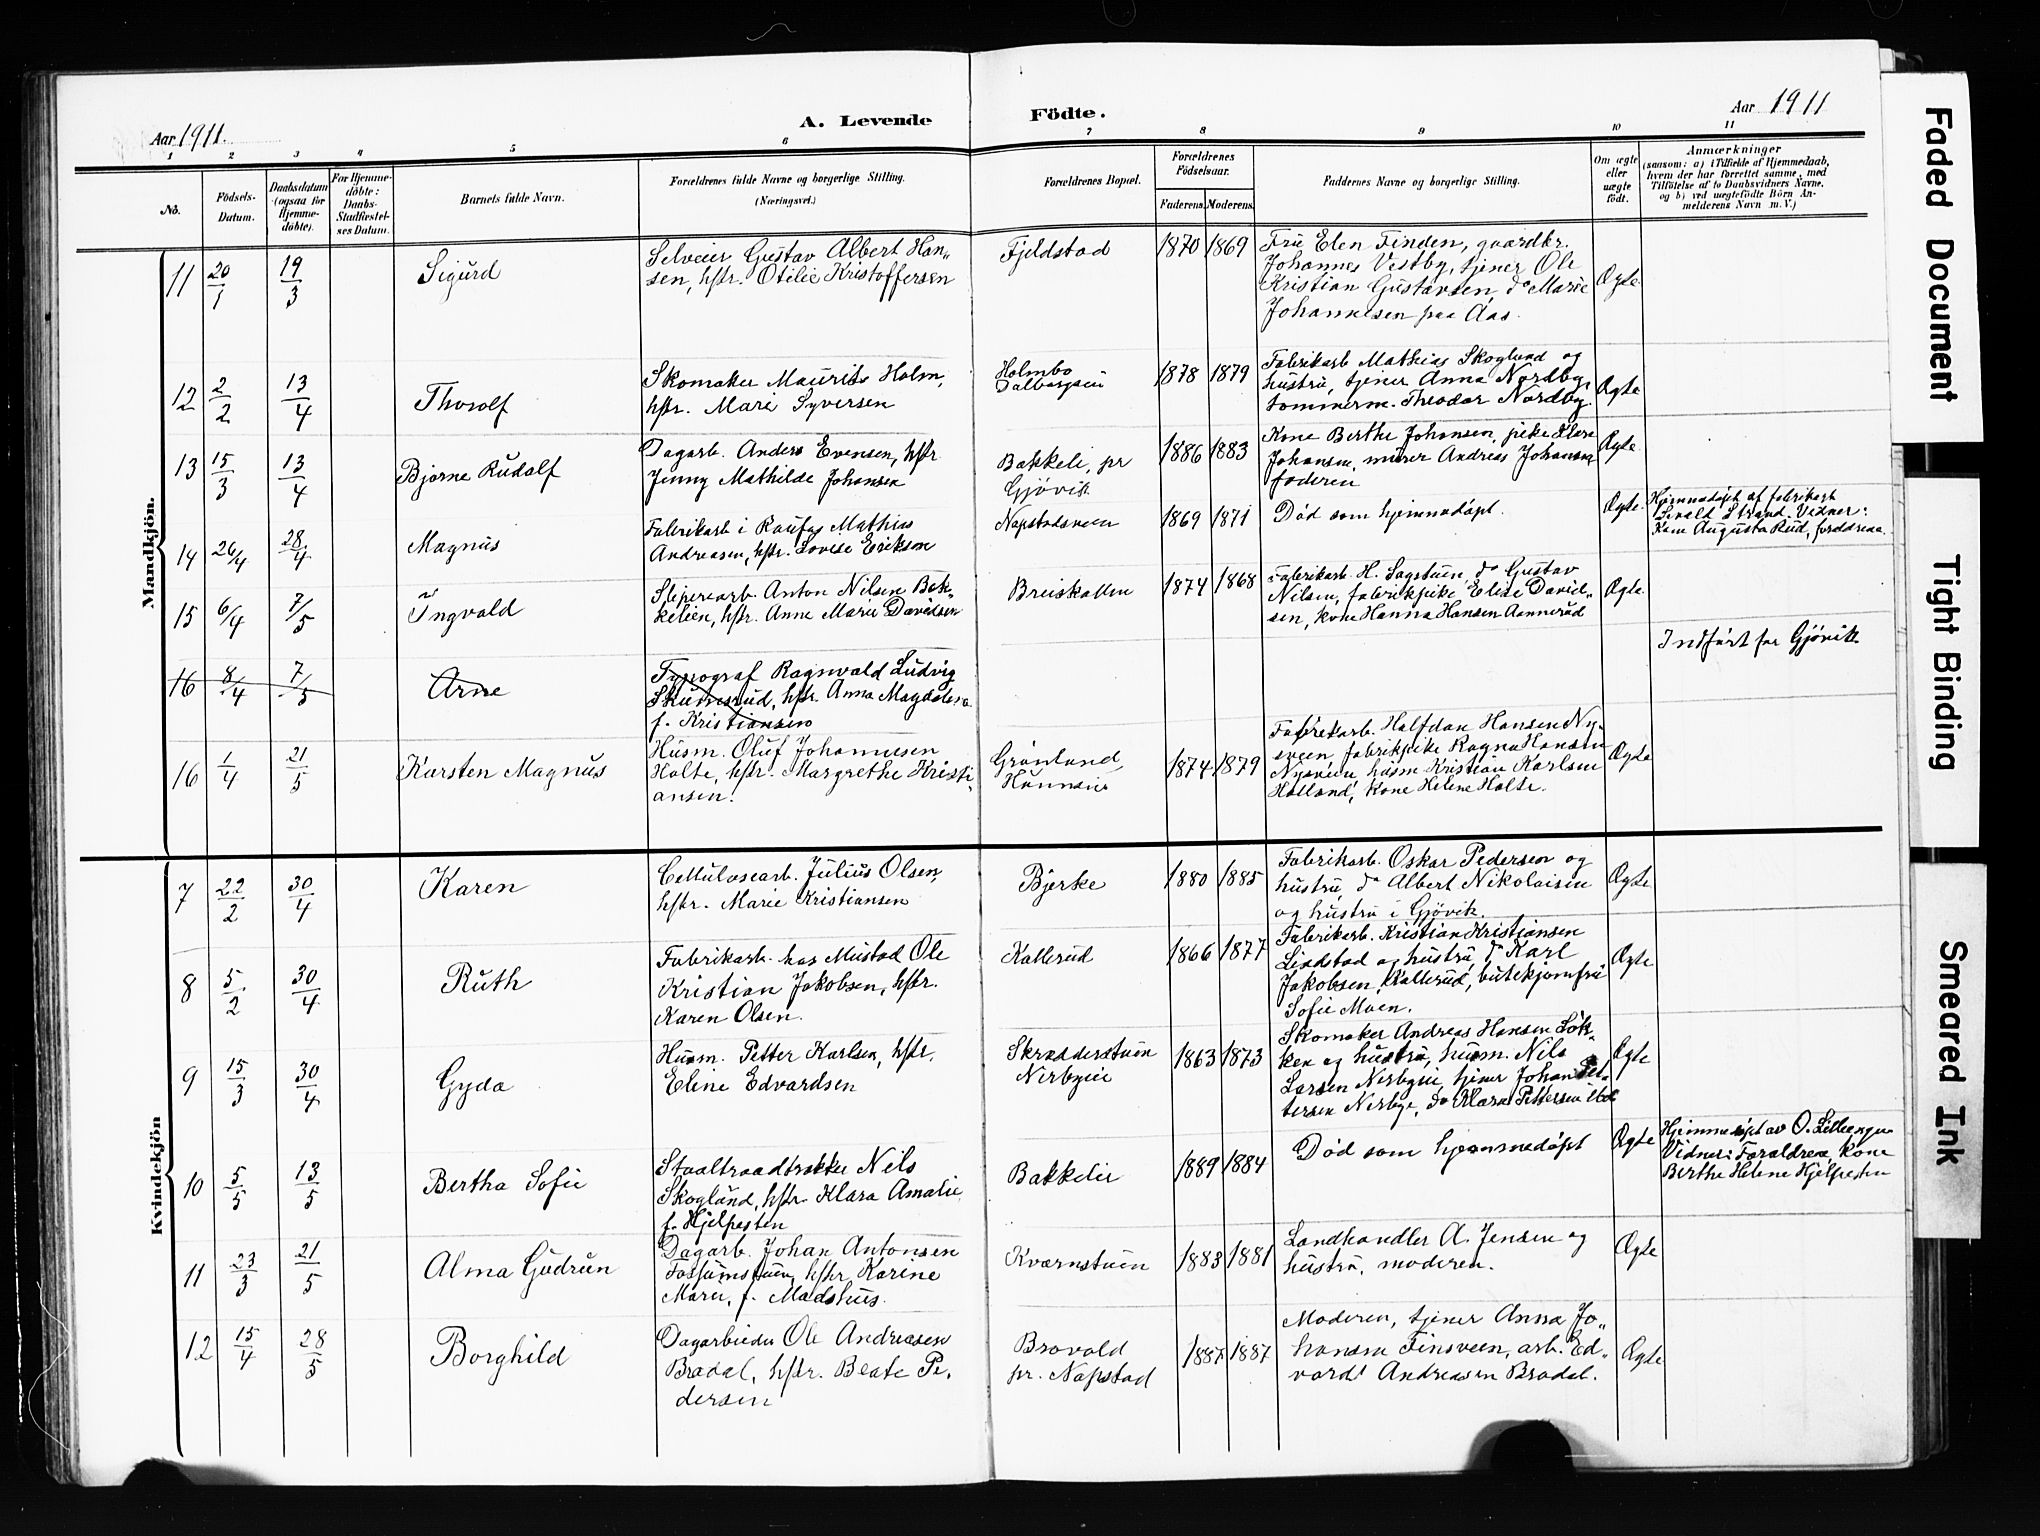 Aar 1911.
A. Levende Födte.
Aar 1911
1 2 3 4 5 6 7 8 9 10 11
No.
Födsels-Datum.
Daabsdatum (ogsaa for Hjemme-döbte).
For Hjemme-döbte: Daabs-Stadfæstel-ses Datum.
Barnets fulde Navn.
Forældrenes fulde Navne og borgerlige Stilling.
(Næringsvei.)
Forældrenes Bopæl.
Forældrenes Födselsaar.
Faderens. Moderens.
Faddernes Navne og borgerlige Stilling.
Om ægte eller uægte födt.
Anmærkninger
(saasom: a) i Tilfælde af Hjemmedaab,
hvem der har forrettet samme, med
Tilföielse af to Daabsvidners Navne,
og b) ved uægtefödte Börn An-
melderens Navn m. V.)
Mandkjön.
11 20/1 19/3 Sigurd
Selveier Gustav Albert Han-
sen, hstr. Otilie Kristoffersen
Fjeldstad 1870 1869
Fru Elen Finden, gaardbr.
Johannes Vestby, tjener Ole
Kristian Gustavsen, do Marie
Johannesen paa Aas.
Ægte
12 2/2 13/4 Thorolf
Skomaker Maurits Holm,
hstr. Marie Syversen
Holmbo
Dalborgeie
1878 1879
Fabrikarb. Mathias Skoglund og
hustru, tjener Anna Nordby,
tømmerm. Theodor Nordby.
Ægte
13 15/3 13/4 Bjarne Rudolf
Dagarb. Anders Evensen, hstr
Jenny Mathilde Johansen
Bakkeli, pr
Gjövik
1886 1883
Kone Berthe Johansen, pike Klara
Johansen, murer Andreas Johansen
faderen
Ægte
14 26/4 28/4 Magnus
Fabrikarb i Raufos Mathias
Andreasen, hstr. Lovise Eriksen
Napstadsveen 1869 1871
Død som hjemmedøpt.
Ægte
Hjemmedøpt af fabrikarb
Sevald Strand. Vidner:
Kone Augusta Rud, forældrene.
15 6/4 7/5 Ingvald
Sliperearb Anton Nilsen Bak-
kelien, hstr. Anne Marie Davidsen
Breiskallen 1874 1868
Fabrikarb. H. Sagstuen, do Gustav
Nilsen, fabrikpike Elise David-
sen, kone Hanna Hansen Aannerud
Ægte
16 8/4 7/5 Arne
Typograf Ragnvald Ludvig
Skumsrud, hstr. Anna Magdalena
f. Kristiansen
Indført for Gjövik
16 1/4 21/5 Karsten Magnus
Husm. Oluf Johannesen
Holte, hstr. Margrethe Kristi-
ansen.
Grønland,
Hunnseie
1874 1879
Fabrikarb. Halfdan Hansen Ny-
sveen, fabrikpike Ragna Hansen
Nysveen, husm Kristian Karlsen
Holland, kone Helene Holte.
Ægte
Kvindekjön
7 22/2 30/4 Karen
Cellulosearb. Julius Olsen,
hstr. Marie Kristiansen
Bjerke 1880 1885
Fabrikarb. Oskar Pedersen og
hustru, do Albert Nikolaisen
og hustru i Gjövik.
Ægte
8 5/2 30/4 Ruth
Fabrikarb. hos Mustad Ole
Kristian Jakobsen, hstr.
Karen Olsen.
Kallerud 1866 1877
Fabrikarb. Kristian Kristiansen
Lindstad og hustru, do Karl
Jakobsen, Kallerud, butikjomfru
Sofie Moen.
Ægte
9 15/3 30/4 Gyda
Husm. Petter Karlsen, hstr.
Eline Edvardsen
Skrædderstuen
Nerbyeie
1863 1873
Skomaker Andreas Hansen Løk-
ken og hustru, husm. Nils
Larsen Nerbyeie, tjener Johan Pet-
tersen Nerbye, do Klara Pettersen ibd
Ægte
10 5/5 13/5 Bertha Sofie
Staaltraadtrækker Nils
Skoglund, hstr. Klara Amalie
f. Hjelpesten
Bakkelie 1889 1884
Død som hjemmedøpt
Ægte
Hjemmedøpt av O. Lilleengen
Vidner: Forældrene, kone
Berthe Helene Hjelpesten
11 23/3 21/5 Alma Gudrun
Dagarb. Johan Antonsen
Fossumstuen, hstr. Karine
Marie, f. Madshus.
Kværnstuen 1883 1881
Landhandler A. Jensen og
hustru, moderen.
Ægte
12 15/4 28/5 Borghild
Dagarbeider Ole Andreasen
Bradal, hstr. Beate Pe-
dersen
Brovold
pr. Napstad
1887 1887
Moderen, tjener Anna Jo-
hansen Finsveen, arb. Ed-
vard Andreasen Bradal.
Ægte
Faded Document
Tight Binding
Smeared Ink